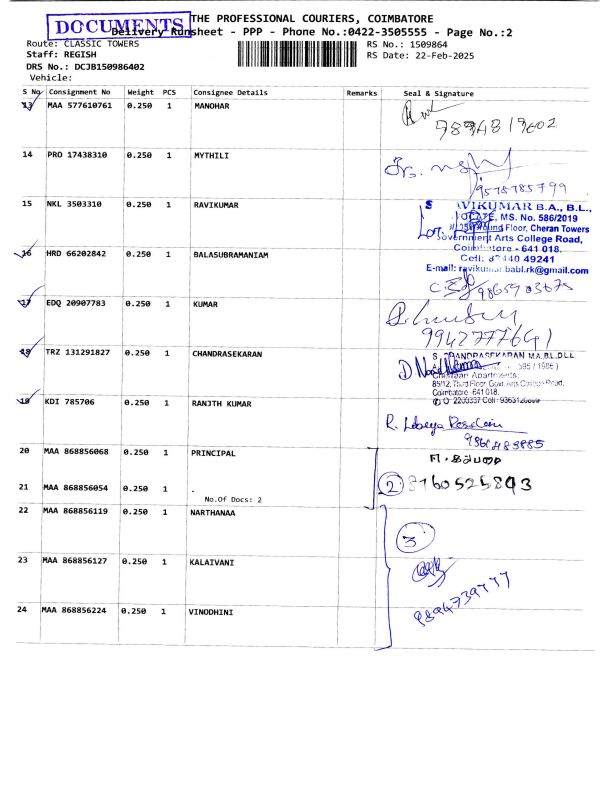 DOCUMENTS
THE PROFESSIONAL COURIERS, COIMBATORE
Delivery Runsheet - PPP - Phone No.:0422-3505555 - Page No.:2
Route: CLASSIC TOWERS
RS No.: 1509864
Staff: REGISH
RS Date: 22-Feb-2025
DRS No.: DCJB150986402
Vehicle:
S No Consignment No Weight PCS Consignee Details Remarks Seal & Signature
13 MAA 577610761 0.250 1 MANOHAR
14 PRO 17438310 0.250 1 MYTHILI
9578785799
15 NKL 3503310 0.250 1 RAVIKUMAR
S VIKUMAR B.A., B.L.,
MS. No. 586/2019
Floor, Cheran Towers
Government Arts College Road,
Coimbatore - 641 018.
16 HRD 66202842 0.250 1 BALASUBRAMANIAM
Cell: 87440 49241
E-mail: ravikumar.babl.rk@gmail.com
17 EDQ 20907783 0.250 1 KUMAR
9942777641
18 TRZ 131291827 0.250 1 CHANDRASEKARAN
S. CHANDRASEKARAN M.A.,B.L.,D.L.L
Apartments,
85/12, Third Floor, Govt. Arts College Road,
Coimbatore - 641 018.
19 KDI 785706 0.250 1 RANJTH KUMAR
20 MAA 868856068 0.250 1 PRINCIPAL
21 MAA 868856054 0.250 1 .
2
No.Of Docs: 2
22 MAA 868856119 0.250 1 NARTHANAA
3
23 MAA 868856127 0.250 1 KALAIVANI
24 MAA 868856224 0.250 1 VINODHINI